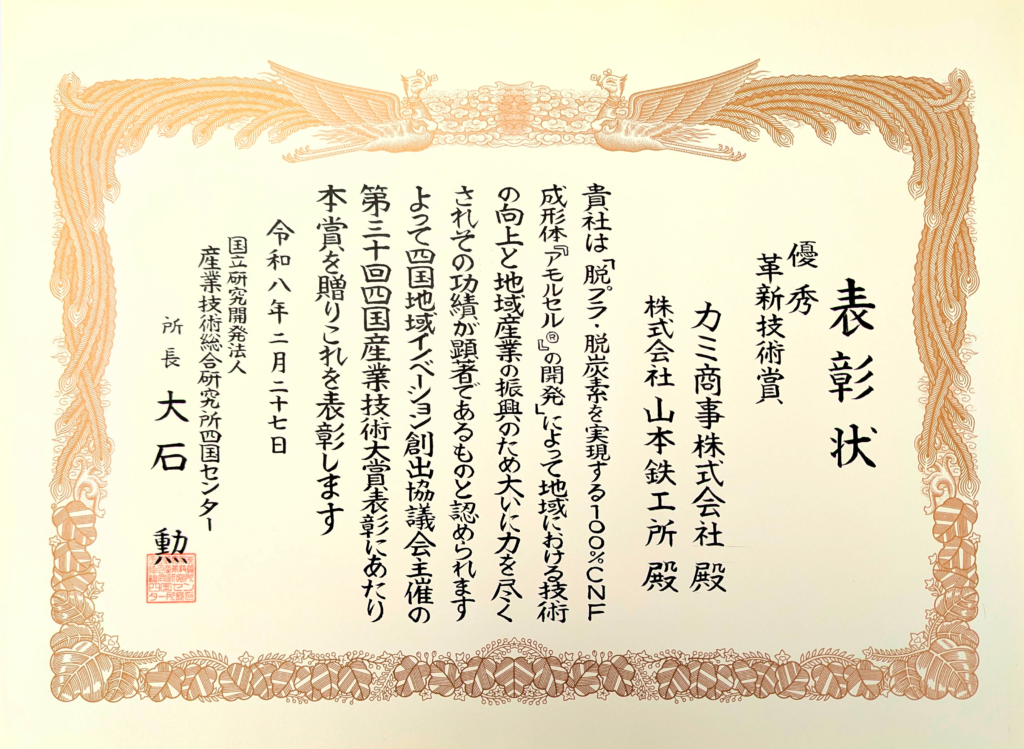 表彰状
優秀
革新技術賞
カミ商事株式会社 殿
株式会社 山本鉄工所 殿
貴社は「脱プラ・脱炭素を実現する100%CNF
成形体『アモルセル®』の開発」によって地域における技術
の向上と地域産業の振興のため大いに力を尽く
されその功績が顕著であるものと認められます
よって四国地域イノベーション創出協議会主催の
第三十回四国産業技術大賞表彰にあたり
本賞を贈りこれを表彰します
令和八年二月二十七日
国立研究開発法人
産業技術総合研究所四国センター
所長 大石 勲